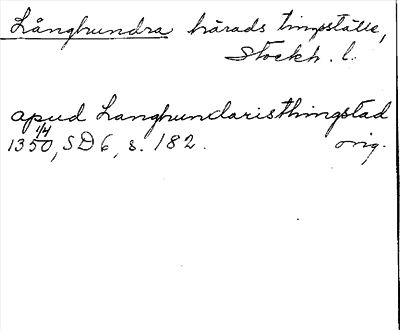 Långhundra härads tingsställe,
Stockh. l.
apud Langhundaristhingstad
1350, 1/4 SD 6, s. 182. orig.